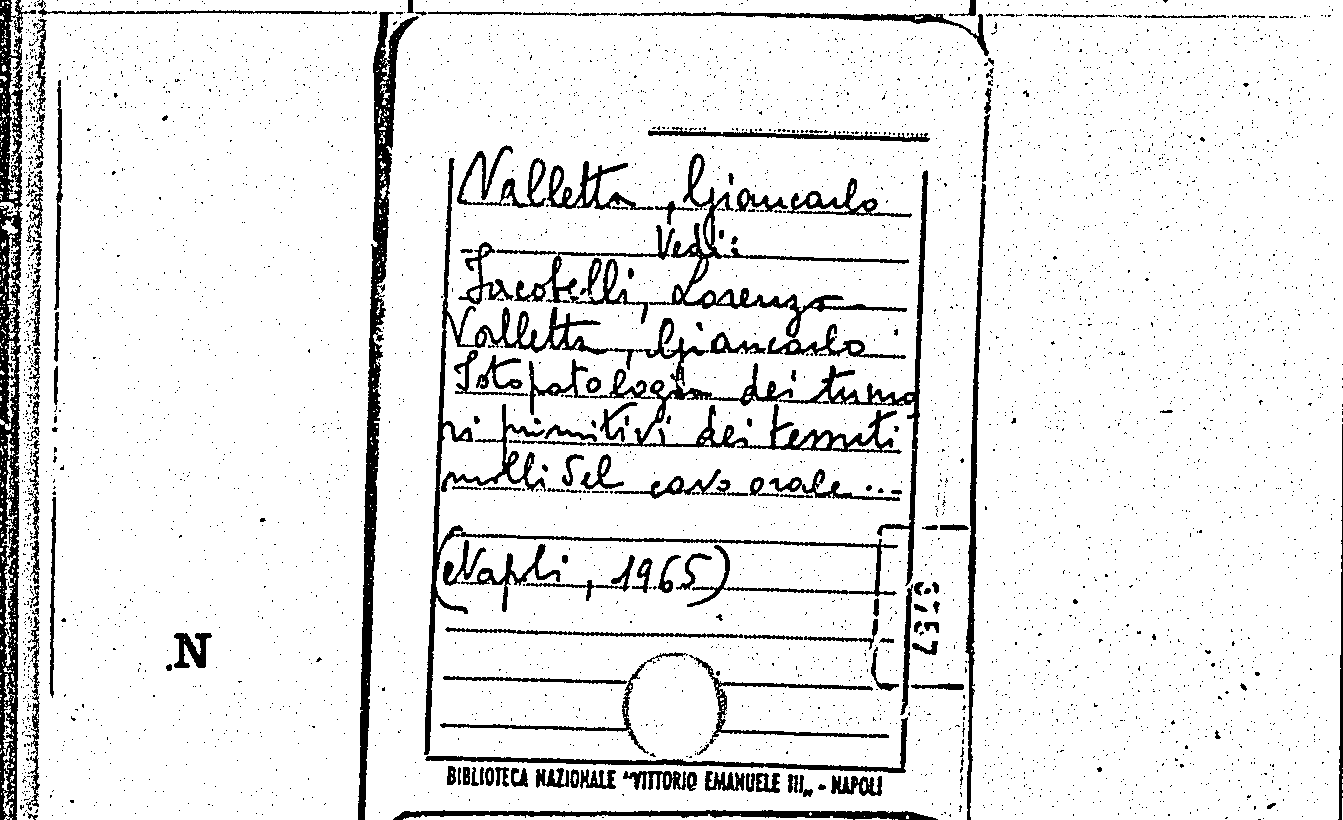 Valletta, Giancarlo
Vedi:
Jacobelli, Lorenzo
Valletta, Giancarlo
Istopatologia dei tumo
ri primitivi dei tessuti
molli del cavo orale...
(Napoli, 1965)
N
BIBLIOTECA NAZIONALE "VITTORIO EMANUELE III„ - NAPOLI